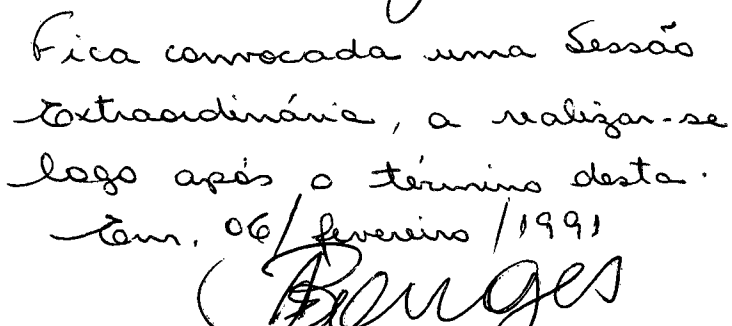 Fica convocada uma Sessão
Extraordinária, a realizar-se
logo após o término desta.
Em, 06/fevereiro/1991